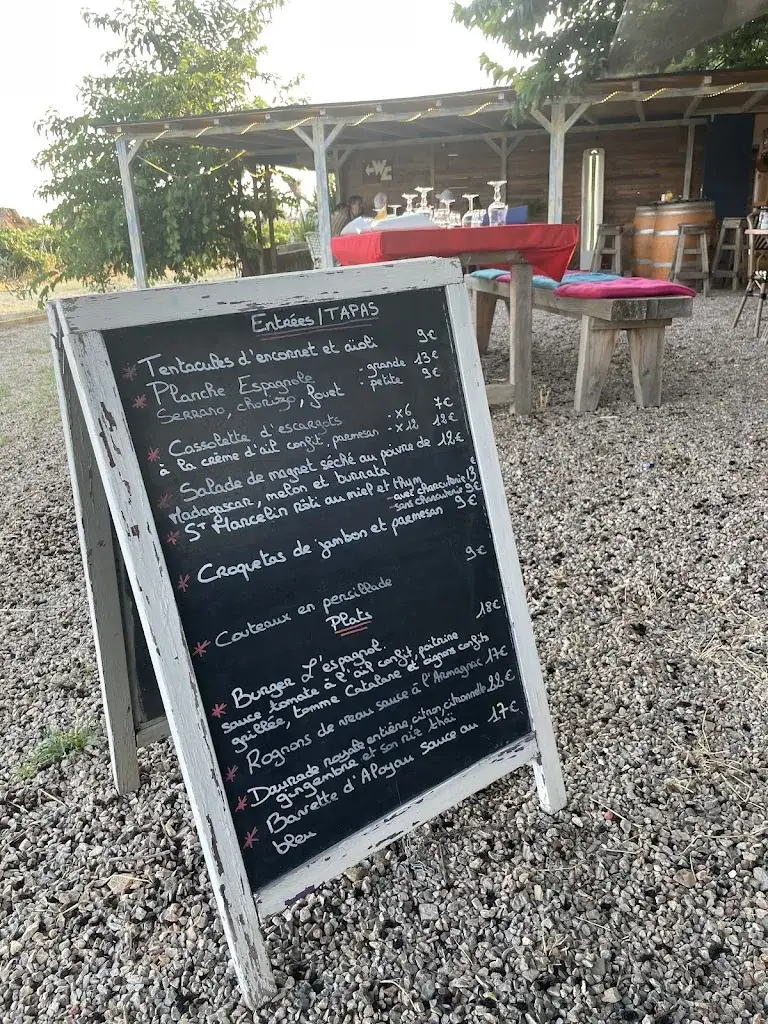 Entrées / TAPAS
* Tentacules d'encornet et aïoli 9€
* Planche Espagnole - grande 13€
Serrano, chorizo, fouet - petite 9€
* Cassolette d'escargots - x6 7€
à la crème d'ail confit, parmesan - x12 12€
* Salade de magret séché au poivre de 12€
Madagascar, melon et burrata
* St Marcelin Rôti au miel et thym - avec charcuterie 13€
- sans charcuterie 9€
* Croquetas de jambon et parmesan 9€
* Couteaux en persillade 9€
Plats
* Burger L'espagnol. 18€
sauce tomate à l'ail confit, poitrine
grillée, tomme Catalane et oignons confits
* Rognons de veau sauce à l'Armagnac 17€
* Daurade royale entière, citron, citronnelle 22€
gingembre et son riz thaï
* Bavette d'Aloyau sauce au 17€
bleu
WC